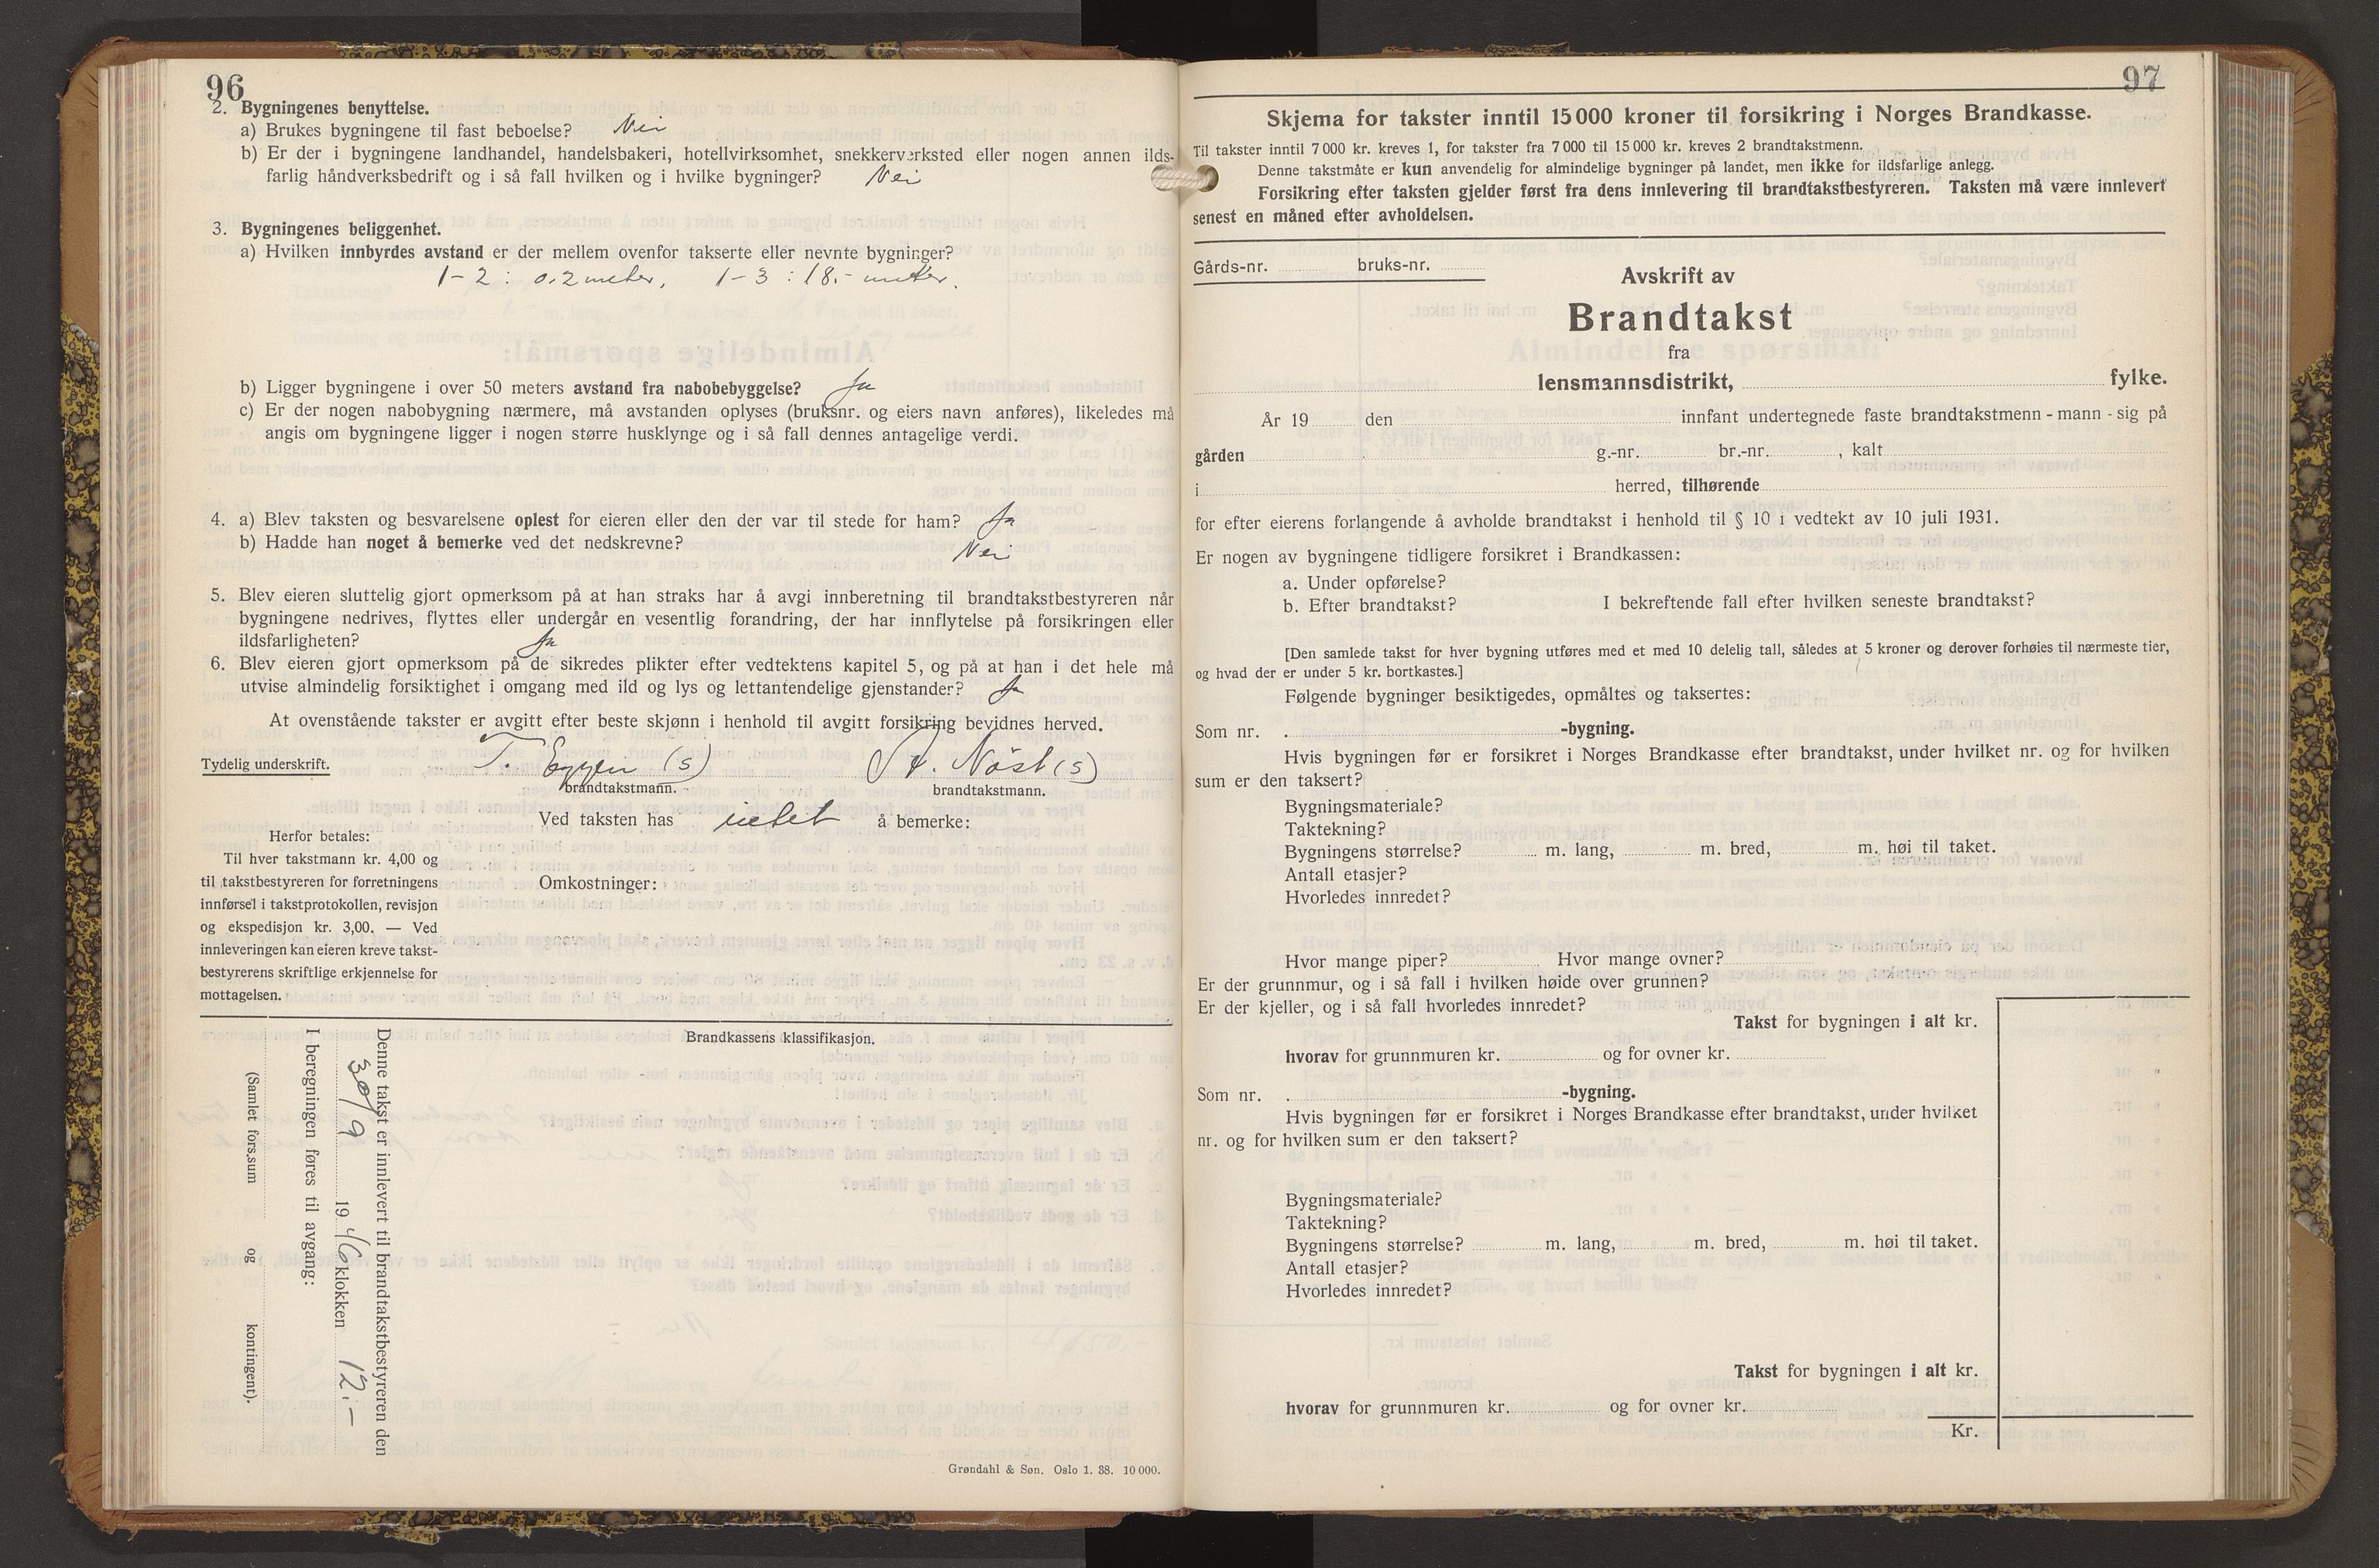 96
2. Bygningenes benyttelse.
a) Brukes bygningene til fast beboelse? Nei
b) Er der i bygningene landhandel, handelsbakeri, hotellvirksomhet, snekkerverksted eller nogen annen ilds-
farlig håndverksbedrift og i så fall hvilken og i hvilke bygninger? Nei
3. Bygningenes beliggenhet.
a) Hvilken innbyrdes avstand er der mellem ovenfor takserte eller nevnte bygninger?
1-2 : 0.2 meter, 1-3 : 18.- meter.
b) Ligger bygningene i over 50 meters avstand fra nabobebyggelse? Ja
c) Er der nogen nabobygning nærmere, må avstanden oplyses (bruksnr. og eiers navn anføres), likeledes må
angis om bygningene ligger i nogen større husklynge og i så fall dennes antagelige verdi.
4. a) Blev taksten og besvarelsene oplest for eieren eller den der var til stede for ham? Ja
b) Hadde han noget å bemerke ved det nedskrevne? Nei
5. Blev eieren sluttelig gjort opmerksom på at han straks har å avgi innberetning til brandtakstbestyreren når
bygningene nedrives, flyttes eller undergår en vesentlig forandring, der har innflytelse på forsikringen eller
ildsfarligheten? Ja
6. Blev eieren gjort opmerksom på de sikredes plikter efter vedtektens kapitel 5, og på at han i det hele må
utvise almindelig forsiktighet i omgang med ild og lys og lettantendelige gjenstander? Ja
At ovenstående takster er avgitt efter beste skjønn i henhold til avgitt forsikring bevidnes herved.
Tydelig underskrift. T. Eggen (s) A. Nøst (s)
brandtakstmann. brandtakstmann.
Ved taksten has intet å bemerke:
Herfor betales:
Til hver takstmann kr. 4,00 og
til takstbestyreren for forretningens
innførsel i takstprotokollen, revisjon
og ekspedisjon kr. 3,00. — Ved
innleveringen kan eieren kreve takst-
bestyrerens skriftlige erkjennelse for
mottagelsen.
Omkostninger:
Brandkassens klassifikasjon.
Denne takst er innlevert til brandtakstbestyreren den
30/9 1946 klokken 12.-
I beregningen føres til avgang:
(Samlet fors.sum og kontingent).
Grøndahl & Søn. Oslo 1. 38. 10 000.
97
Skjema for takster inntil 15 000 kroner til forsikring i Norges Brandkasse.
Til takster inntil 7 000 kr. kreves 1, for takster fra 7 000 til 15 000 kr. kreves 2 brandtakstmenn.
Denne takstmåte er kun anvendelig for almindelige bygninger på landet, men ikke for ildsfarlige anlegg.
Forsikring efter taksten gjelder først fra dens innlevering til brandtakstbestyreren. Taksten må være innlevert
senest en måned efter avholdelsen.
Gårds-nr. bruks-nr.
Avskrift av
Brandtakst
fra
lensmannsdistrikt, fylke.
År 19 den innfant undertegnede faste brandtakstmenn - mann - sig på
gården g.-nr. br.-nr. , kalt
i herred, tilhørende
for efter eierens forlangende å avholde brandtakst i henhold til § 10 i vedtekt av 10 juli 1931.
Er nogen av bygningene tidligere forsikret i Brandkassen:
a. Under opførelse?
b. Efter brandtakst? I bekreftende fall efter hvilken seneste brandtakst?
[Den samlede takst for hver bygning utføres med et med 10 delelig tall, således at 5 kroner og derover forhøies til nærmeste tier,
og hvad der er under 5 kr. bortkastes.]
Følgende bygninger besiktigedes, opmåltes og taksertes:
Som nr. -bygning.
Hvis bygningen før er forsikret i Norges Brandkasse efter brandtakst, under hvilket nr. og for hvilken
sum er den taksert?
Bygningsmateriale?
Taktekning?
Bygningens størrelse? m. lang, m. bred, m. høi til taket.
Antall etasjer?
Hvorledes innredet?
Hvor mange piper? Hvor mange ovner?
Er der grunnmur, og i så fall i hvilken høide over grunnen?
Er der kjeller, og i så fall hvorledes innredet?
Takst for bygningen i alt kr.
hvorav for grunnmuren kr. og for ovner kr.
Som nr. -bygning.
Hvis bygningen før er forsikret i Norges Brandkasse efter brandtakst, under hvilket
nr. og for hvilken sum er den taksert?
Bygningsmateriale?
Taktekning?
Bygningens størrelse? m. lang, m. bred, m. høi til taket.
Antall etasjer?
Hvorledes innredet?
Takst for bygningen i alt kr.
hvorav for grunnmuren kr. og for ovner kr.
Kr.